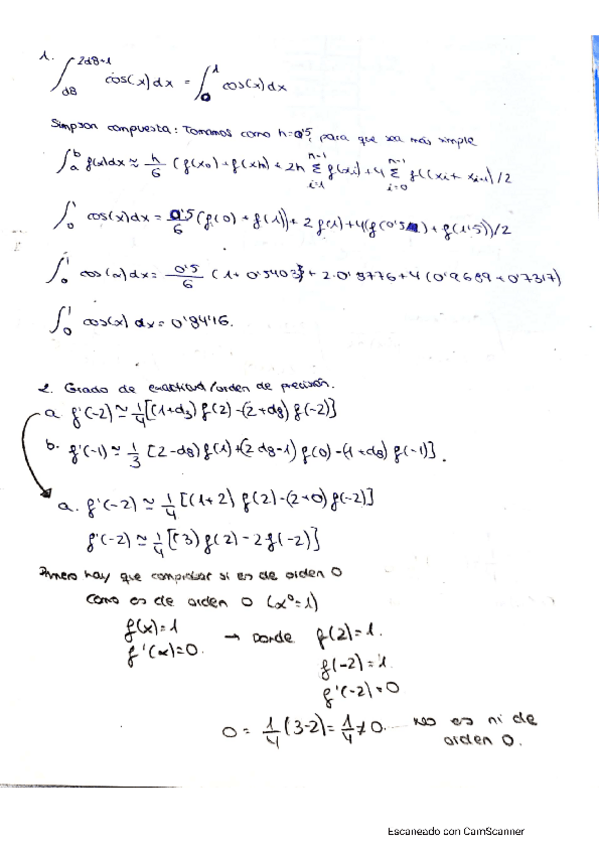 1. ∫_{d8}^{2d8+1} cos(x)dx = ∫_0^1 cos(x)dx
Simpson compuesta: Tomamos como h=0'5, para que sea más simple
∫_a^b f(x)dx ≈ h/6 (f(x0)+f(xn)+2h Σ_{i=1}^{n-1} f(xi)+4 Σ_{i=0}^{n-1} f((xi+xi+1)/2
∫_0^1 cos(x)dx = 0'5/6 (f(0)+f(1))+2 f(1)+4(f(0'5)+f(1'5))/2
∫_0^1 cos(x)dx = 0'5/6 (1+0'5403)+2·0'8776+4(0'9689+0'7317)
∫_0^1 cos(x)dx = 0'8416.
2. Grado de exactitud/orden de precisión.
a. f'(-2) ≃ 1/4[(1+d3) f(2)-(2+d8) f(-2)]
b. f'(-1) ≃ 1/3 [2-d8) f(1)+(2d8-1) f(0)-(1+d8) f(-1)].
a. f'(-2) ≃ 1/4 [(1+2) f(2)-(2+0) f(-2)]
f'(-2) ≃ 1/4 [(3) f(2)-2f(-2)]
Primero hay que comprobar si es de orden 0
Como es de orden 0 (x⁰=1)
f(x)=1 → Donde f(2)=1.
f'(x)=0. f(-2)=1.
f'(-2)=0
0 = 1/4 (3-2) = 1/4 ≠ 0. No es ni de
orden 0.
Escaneado con CamScanner